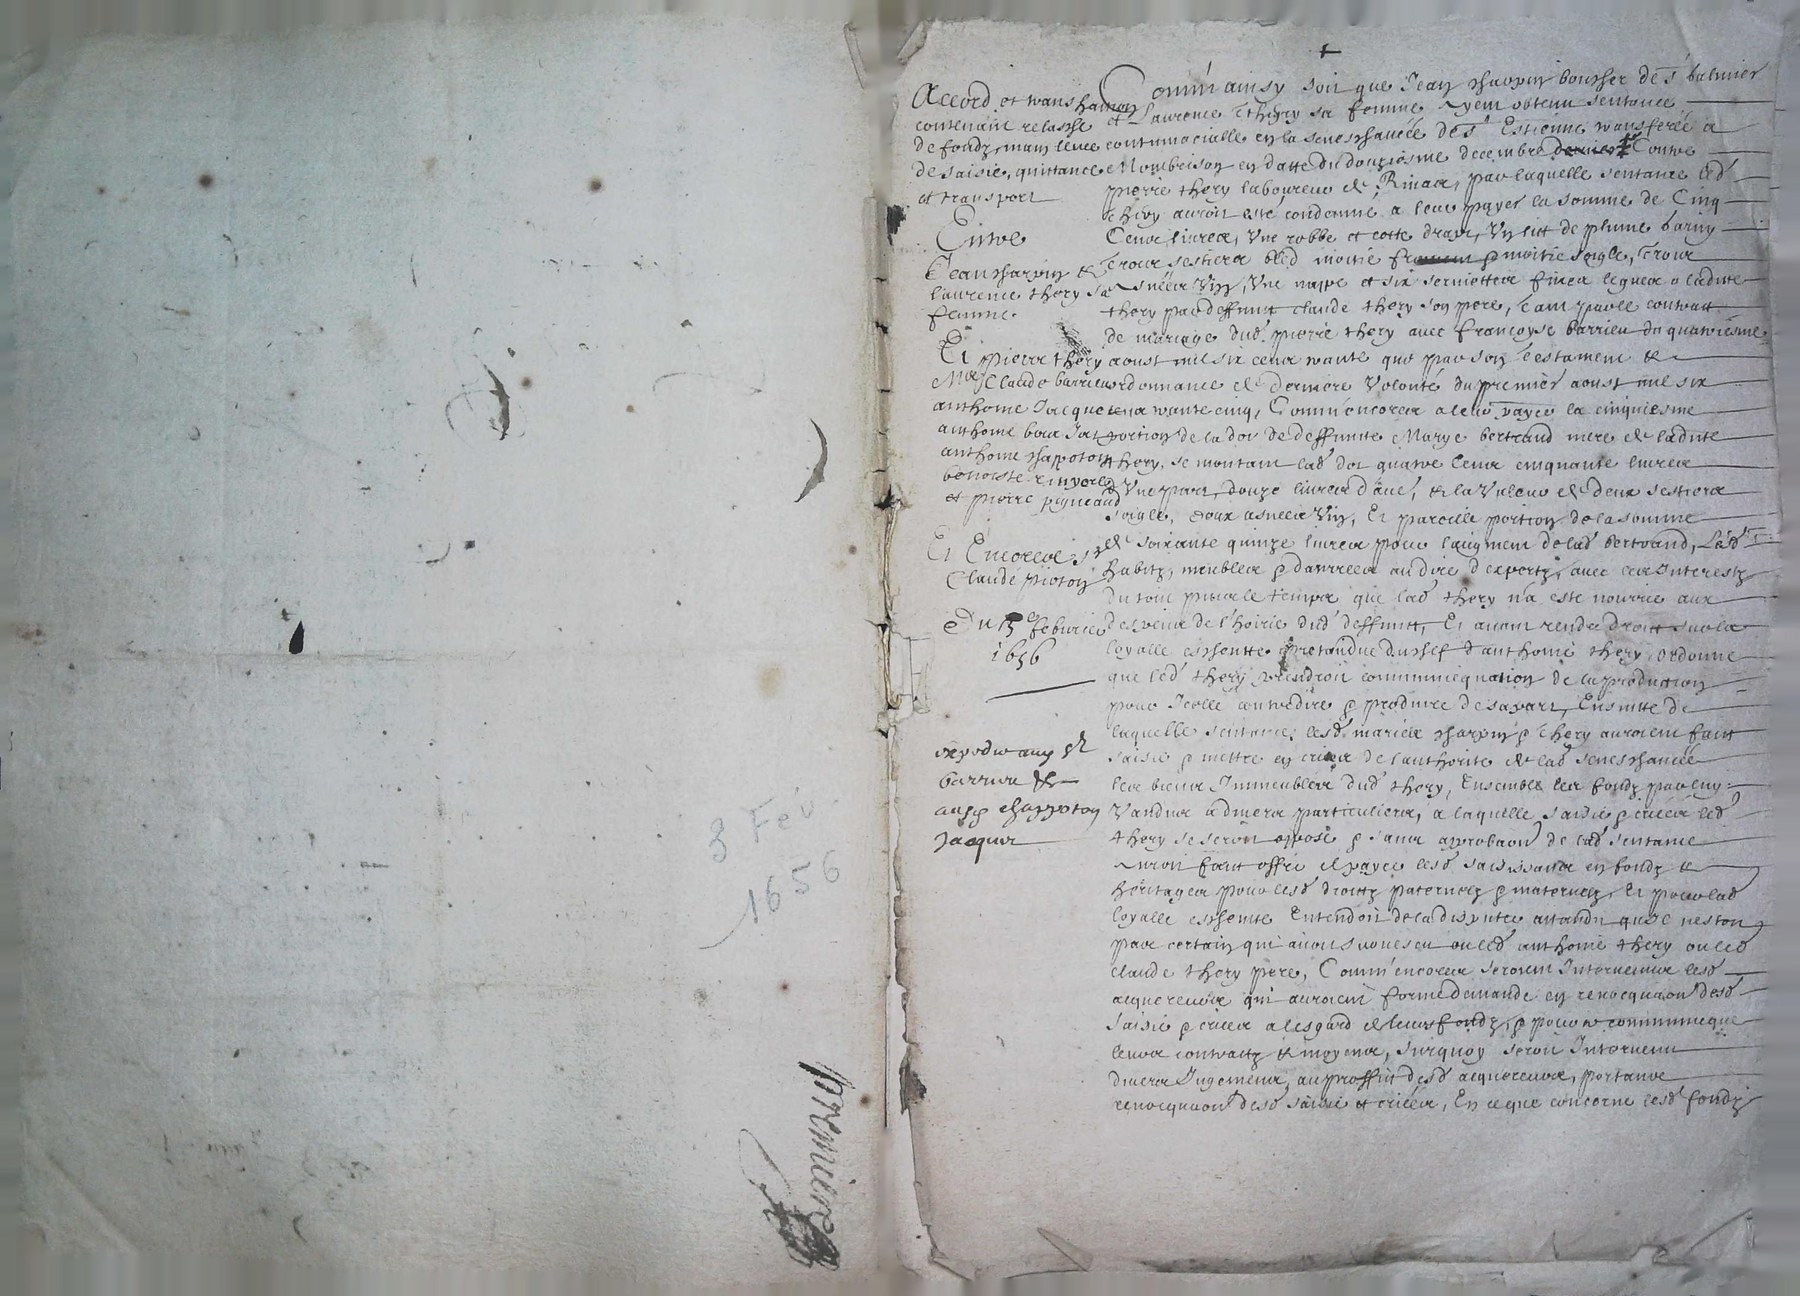 3 Fev
1656
premiere
Accord et transhaction
contenant relasche
de fondz, main levee
de saisie, quittance
et transport
Entre
Jean charpin &
laurence thery sa
femme.
Et pierre thery
Mre Claude barrieu
anthoine Jacque
anthoine
anthoine chappoton
benoiste
et pierre
Et Encores sr
Claude pioton
Du febvrier
1656
expedie aux srs
barrieu &
aussy chappoton
Jacques
Comm'ainsy soit que Jean charpin boucher de St Galmier
et Laurence thery sa femme ayent obtenu sentence
contumacialle en la seneschaucée de St Estienne transferée a
Montbrison en datte du douziesme decembre dernier Contre
pierre thery laboureur de par laquelle sentence led
thery auroit esté condemné a leur payer la somme de Cinq
Cent livres, Une robbe et cotte drap, Un lict de plume garny
Trois sestiers bled moitié froment & moitié seigle, Trois
asnées Vin, Une nappe et six serviettes fines leguez a ladite
thery par deffunt claude thery son pere, tant par le contract
de mariage dud pierre thery avec françoyse barrieu du quatriesme
aoust mil six cent trante que par son testament &
ordonnance de derniere Volonté du premier aoust mil six
cent trante cinq, Comm'encores a leur payer la cinquiesme
portion de la dot de deffunte Marye bertrand mere de ladite
thery, se montant lad dot quatre Cent cinquante livres
d'Une part, douze livres d'autre, & la Valeur de deux sestiers
seigle, deux asnées Vin, Et pareille portion de la somme
de soixante quinze livres pour l'augment de lad bertrand, Lesd
habitz, meubles & danrées au dire d'expertz, avec les Interestz
du tout pour le temps que lad thery n'a esté nourrie aux
despens de l'hoirie dud deffunt, Et avant rendre droit sur la
loyalle escheutte pretendue du chef d'anthoine thery, ordonné
que led thery prendroit communiquation de la production
pour Icelle contredire & produire de sa part, Ensuitte de
laquelle sentence, lesd mariés charpin & thery auroient faict
saisir & mettre en criées de l'authorité de lad seneschaucée
les biens Immeubles dud thery, Ensemble les fondz par luy
Vandus a divers particuliers, a laquelle saisie & criées led
thery se seroit opposé & sans approbaon de lad sentence
auroit faict offre de payer lesd saisissants en fondz &
heritages pour lesd droittz paternelz & maternelz, Et pour lad
loyalle escheutte Entendoit de la disputer attandu qu'Il n'estoit
pas certain qui avoit survescu ou led anthoine thery ou led
claude thery pere, Comm'encores seroient Intervenus lesd
acquereurs qui auroient formé demande en revocquaon desd
saisie & criées a l'esgard de leurs fondz, & pour ce communicqué
leurs contractz & moyens, surquoy seroit Intervenu
divers Jugements, au proffict desd acquereurs, portants
revocquaon desd saisie et criées, En ce que concerne lesd fondz